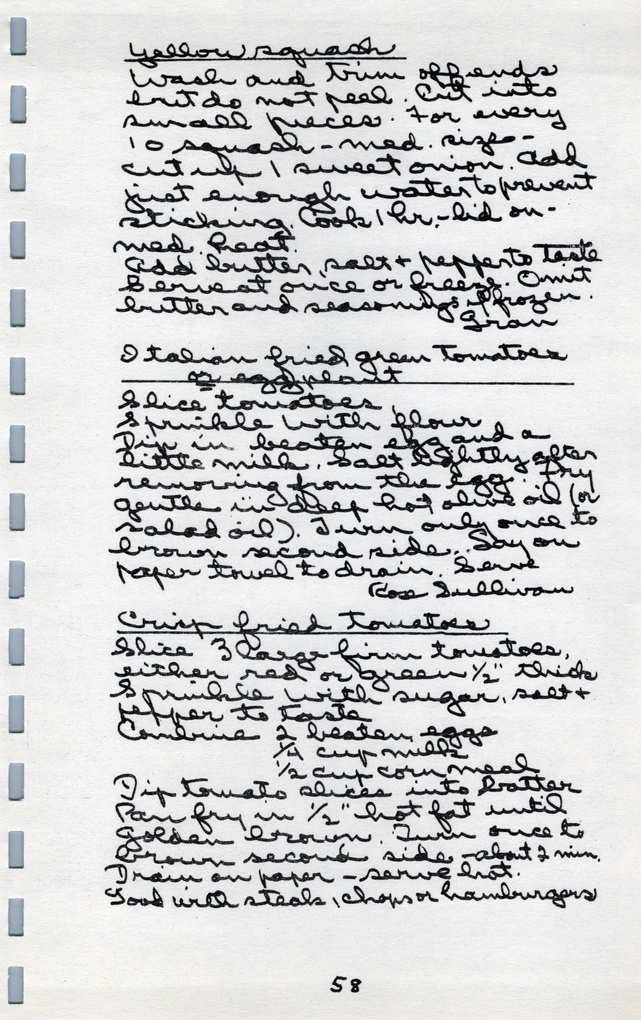 Yellow squash
Wash and trim off ends
but do not peel. Cut into
small pieces. For every
10 squash - med. size -
cut up 1 sweet onion. Add
just enough water to prevent
sticking. Cook 1 hr. - lid on -
med. heat.
Add butter, salt + pepper to taste
Serve at once or freeze. Omit
butter and seasonings if frozen.
Gran
Italian fried green tomatoes
or eggplant
Slice tomatoes
Sprinkle with flour
Dip in beaten egg and a
little milk. Salt lightly after
removing from the egg. Fry
gentle in deep hot olive oil (or
salad oil). Turn only once to
brown second side. Lay on
paper towel to drain. Serve
Rose Sullivan
Crisp fried tomatoes
Slice 3 large firm tomatoes,
either red or green 1/2" thick
Sprinkle with sugar, salt +
pepper to taste
Combine 2 beaten eggs
1/4 cup milk
1/2 cup corn meal
Dip tomato slices into batter
Pan fry in 1/2" hot fat until
golden brown. Turn once to
brown second side - about 2 min.
Drain on paper - serve hot.
Good with steaks, chops or hamburgers
58